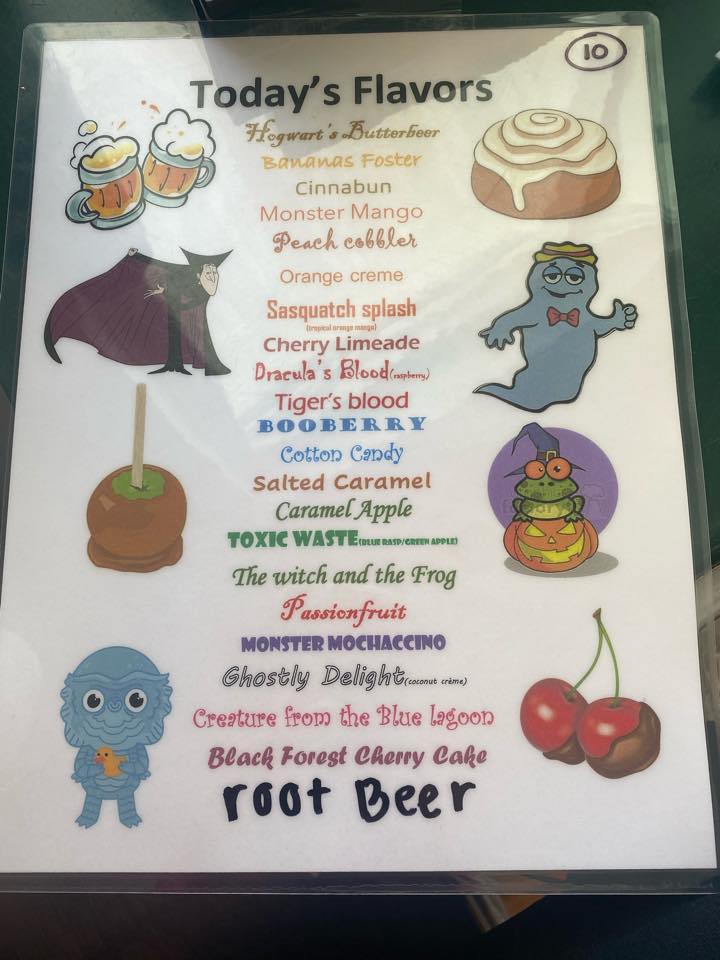 10
Today's Flavors
Hogwart's Butterbeer
Bananas Foster
Cinnabun
Monster Mango
Peach cobbler
Orange creme
Sasquatch splash
(tropical orange mango)
Cherry Limeade
Dracula's Blood(raspberry)
Tiger's blood
BOOBERRY
Cotton Candy
Salted Caramel
Caramel Apple
TOXIC WASTE(BLUE RASP/GREEN APPLE)
The witch and the Frog
Passionfruit
MONSTER MOCHACCINO
Ghostly Delight(coconut crème)
Creature from the Blue lagoon
Black Forest Cherry Cake
root Beer